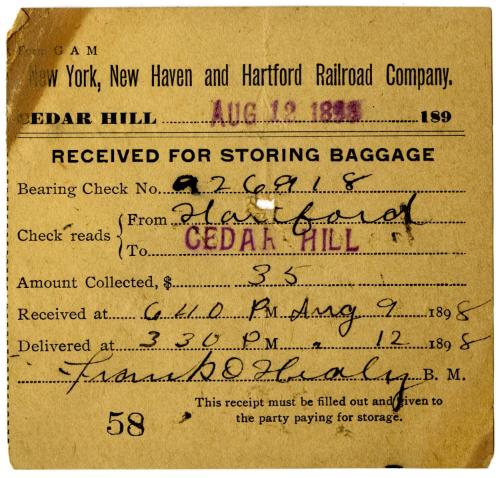 Form G A M
New York, New Haven and Hartford Railroad Company.
CEDAR HILL AUG 12 1898 189
RECEIVED FOR STORING BAGGAGE
Bearing Check No. 926918
Check reads { From Hartford
To CEDAR HILL
Amount Collected, $ 35
Received at 640 PM Aug 9 1898
Delivered at 330 PM " 12 1898
Frank O Healy B. M.
58
This receipt must be filled out and given to
the party paying for storage.